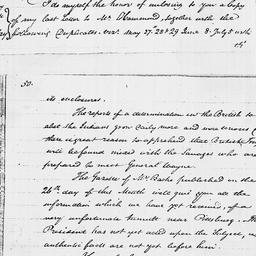 I do myself the honor of enclosing to you a Copy
of my last Letter to Mr. Hammond, together with the
following Duplicates. Vizt. May 27. 28 & 29 June 8. July 5
50.
its enclosures.
The reports of a determination in the British to
abet the Indians grow daily more and more serious
there is great reason to apprehend that British
will be found mixed with the Savages who are
prepared to meet General Wayne.
The Gazette of Mr. Bache published on the
26th. day of this Month will give you all the
information which we have yet received, of a
very unfortunate tumult near Pittsburg.
President has not yet acted upon the Subject, as
authentic facts are not yet before him.